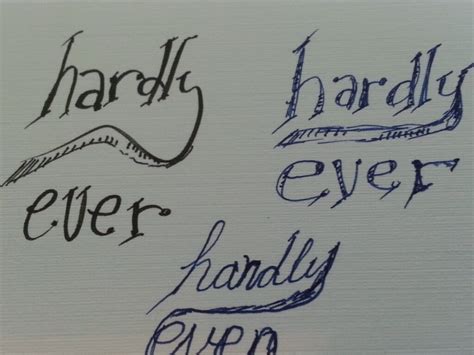 hardly
ever
hardly
ever
hardly
ever